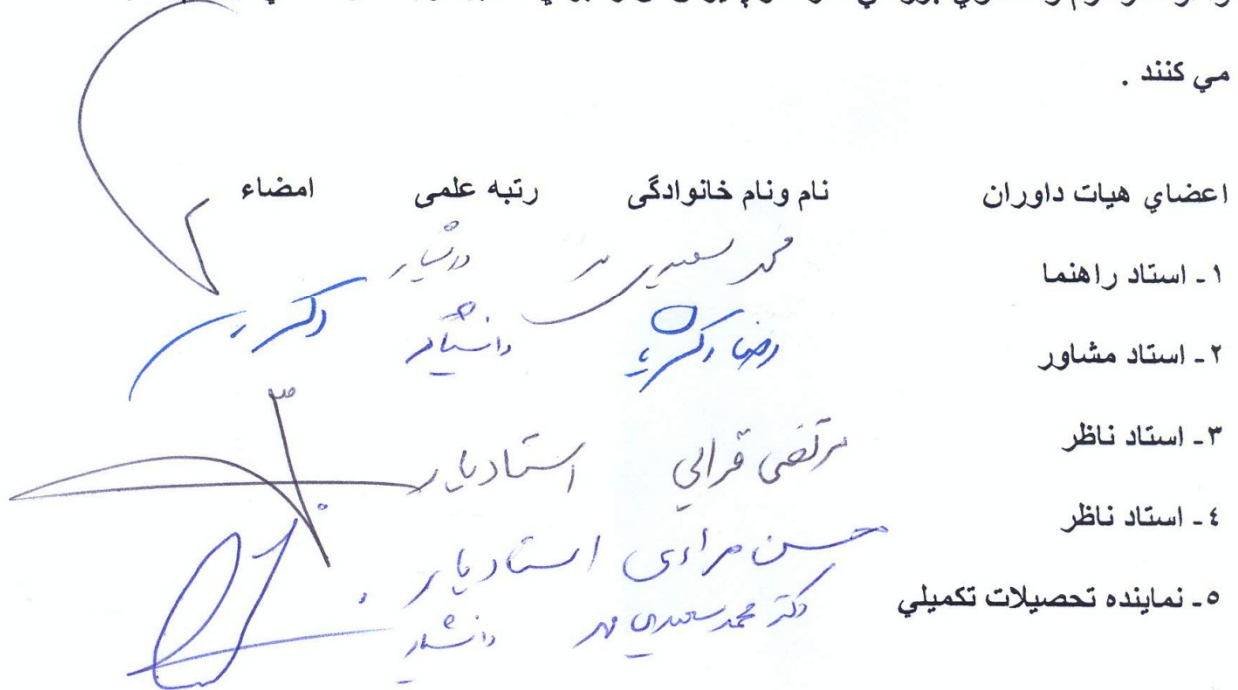 مي كنند .
اعضاي هيات داوران نام ونام خانوادگی رتبه علمی امضاء
١ ـ استاد راهنما محمد سعیدی مهر دانشیار
٢ ـ استاد مشاور رضا اکبریان دانشیار
٣ ـ استاد ناظر مرتضی قرائی استادیار
٤ ـ استاد ناظر حسن مرادی استادیار
٥ ـ نماينده تحصيلات تكميلي دکتر محمد سعیدی مهر دانشیار